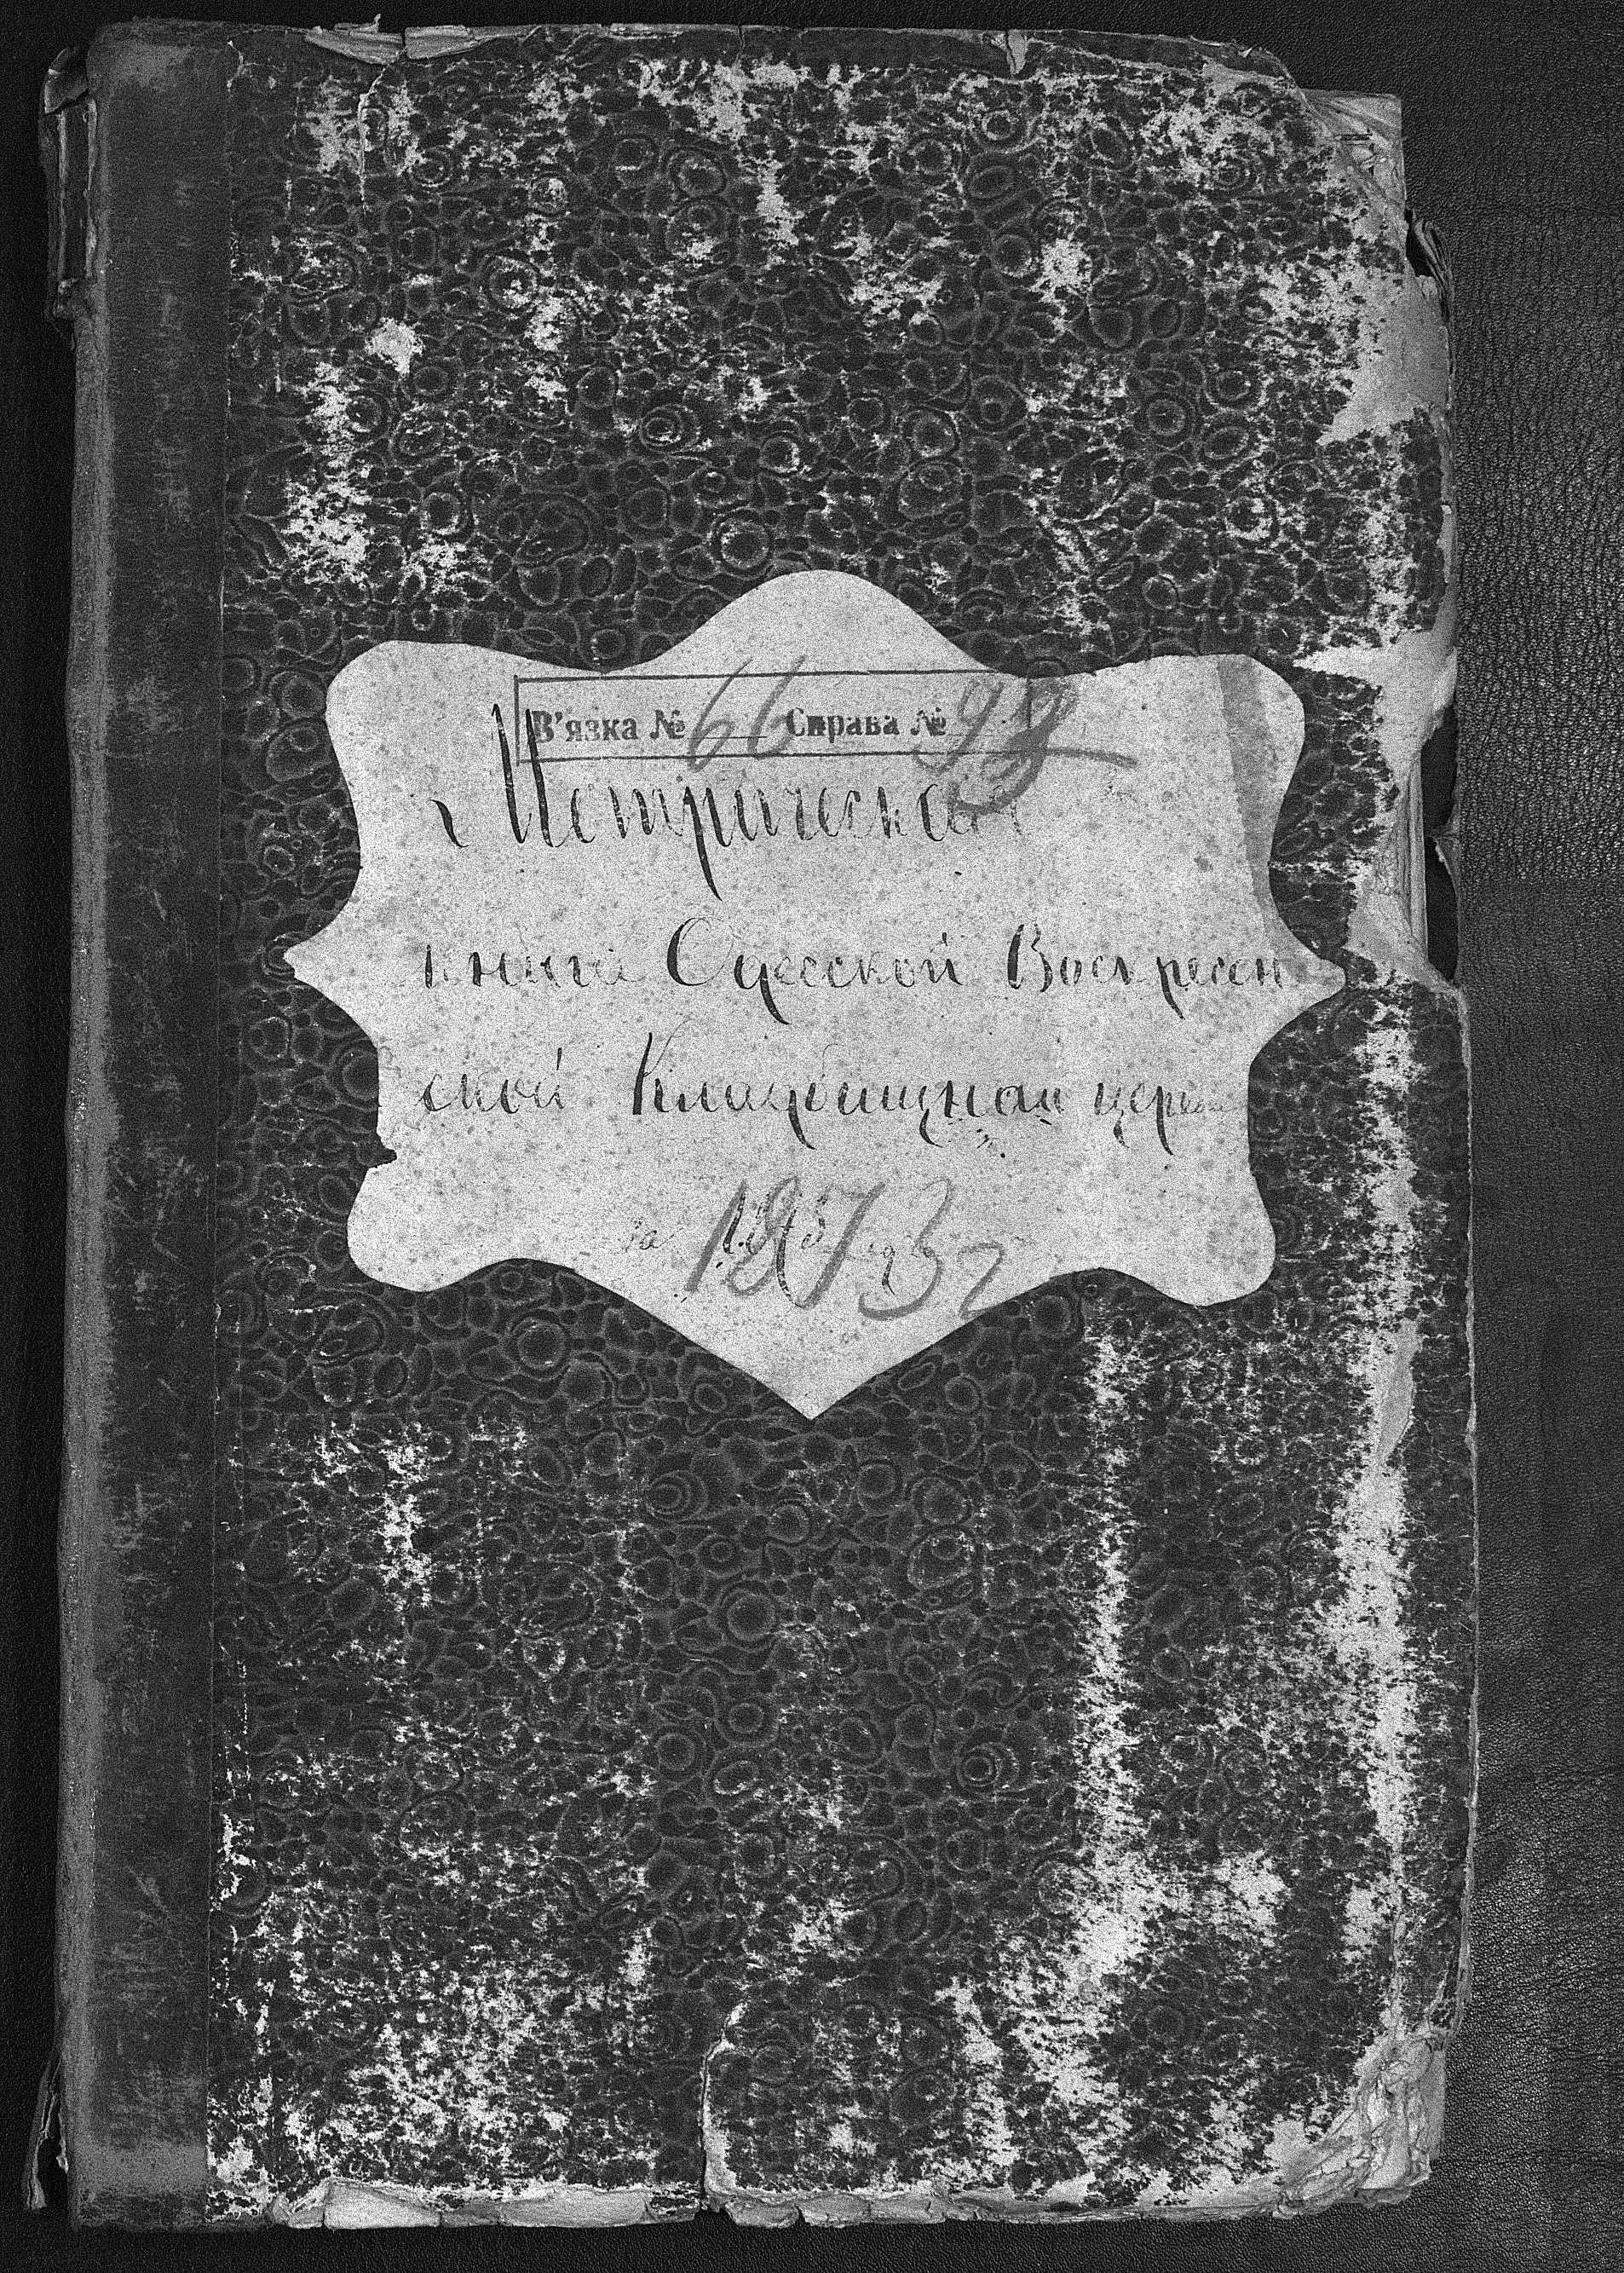 В'язка № 66 Справа № 98
Метрическая
книга Одесской Воскресен
ской Кладбищной церк
за 1873 г